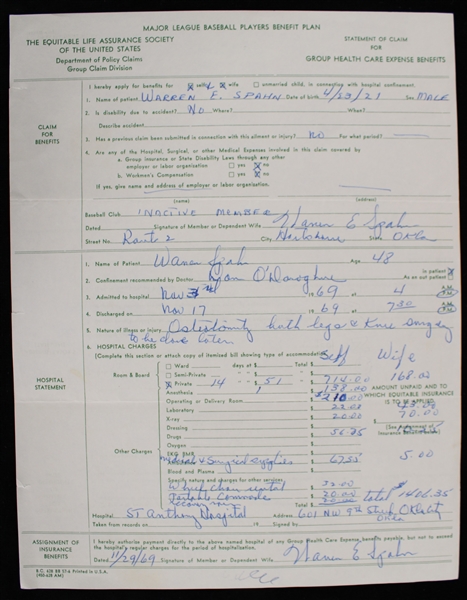 MAJOR LEAGUE BASEBALL PLAYERS BENEFIT PLAN
THE EQUITABLE LIFE ASSURANCE SOCIETY
OF THE UNITED STATES
Department of Policy Claims
Group Claim Division
STATEMENT OF CLAIM
FOR
GROUP HEALTH CARE EXPENSE BENEFITS
CLAIM
FOR
BENEFITS
I hereby apply for benefits for x self x wife unmarried child, in connection with hospital confinement.
1. Name of patient WARREN E. SPAHN Date of birth 4/23/21 Sex MALE
2. Is disability due to accident? NO When? Where?
Describe accident
3. Has a previous claim been submitted in connection with this ailment or injury? NO For what period?
4. Are any of the Hospital, Surgical, or other Medical Expenses involved in this claim covered by
a. Group insurance or State Disability Laws through any other
employer or labor organization? yes x no
b. Workmen's Compensation? yes x no
If yes, give name and address of employer or labor organization.
(name) (address)
Baseball Club INACTIVE MEMBER
Dated Signature of Member or Dependent Wife Warren E Spahn
Street No. Route 2 City Hartshorne State OKla
HOSPITAL
STATEMENT
1. Name of Patient Warren Spahn Age 48
2. Confinement recommended by Doctor O'Donoghue In patient x
As an out patient
3. Admitted to hospital Nov 19 69 at 4
4. Discharged on Nov 17 19 69 at 7:30
5. Nature of illness or injury Osteotomy both legs & Knee surgery
to be done later
6. HOSPITAL CHARGES
(Complete this section or attach copy of itemized bill showing type of accommodation) Self Wife
Room & Board Ward days at $ Total $
Semi-Private $ Total $
x Private 14 $ 51 Total $ 714.00 168.00
Anesthesia 138.00
AMOUNT UNPAID AND TO
WHICH EQUITABLE INSURANCE
IS TO BE APPLIED
Operating or Delivery Room $ 210.00
Laboratory 22.00
X-ray 20.00 70.00
Dressing $
Drugs $ 56.35
Oxygen $
Other Charges EKG BMR
Medical & Surgical supplies 67.55 5.00
Blood and Plasma $
Specify nature and charges for other services
Wheel Chair rental 32.00
Portable Commode 20.00
Total $ total $ 1406.35
Hospital St Anthony Hospital Address 601 NW 9th St OKla City
OKla
Taken from records on 19
ASSIGNMENT OF
INSURANCE
BENEFITS
I hereby authorize payment directly to the above named hospital of any Group Health Care Expense Benefits payable, but not to exceed
the hospital's regular charges for the period of hospitalization.
Dated 11/29/69 Signature of Member or Dependent Wife Warren E Spahn
Printed in U.S.A.